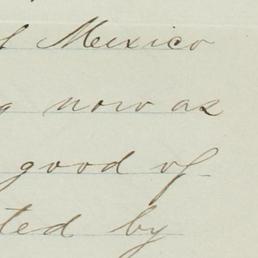 Mexico
now as
good of
ted by